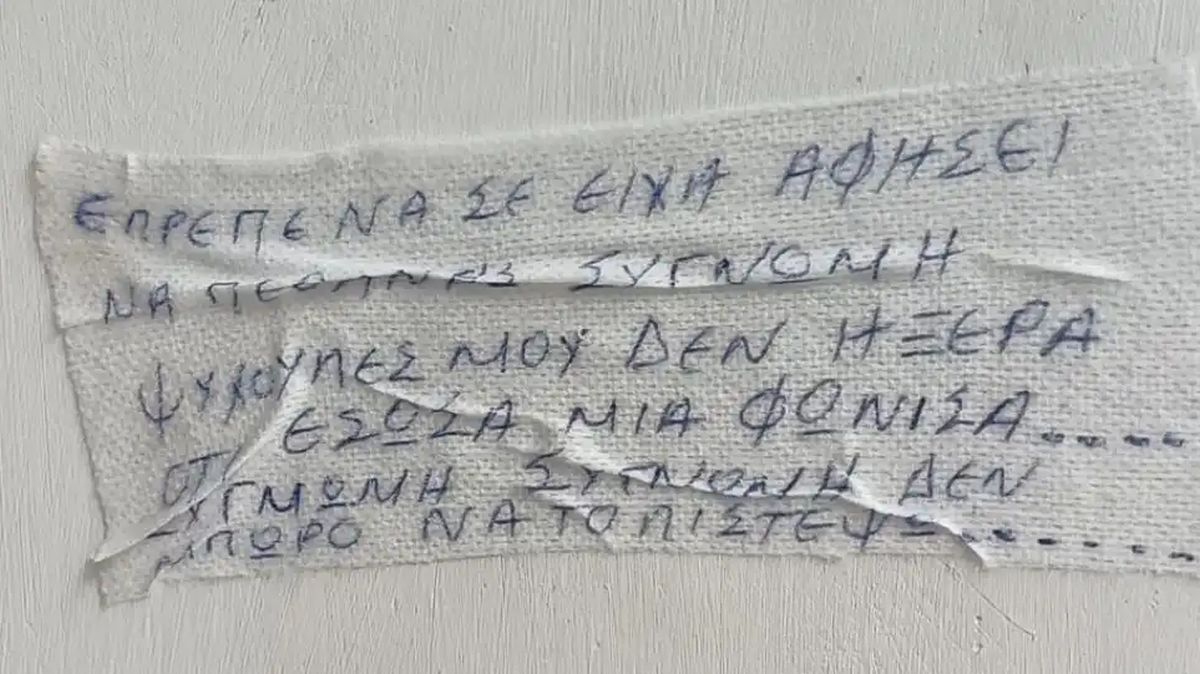 ΕΠΡΕΠΕ ΝΑ ΣΕ ΕΙΧΑ ΑΦΗΣΕΙ
ΝΑ ΠΕΘΑΝΕΙΣ ΣΥΓΝΩΜΗ
ΨΥΧΟΥΠΕΣ ΜΟΥ ΔΕΝ ΗΞΕΡΑ
ΕΣΩΣΑ ΜΙΑ ΦΩΝΙΣΑ.....
ΣΥΓΜΩΜΗ ΣΥΓΝΩΜΗ ΔΕΝ
ΜΠΩΡΟ ΝΑ ΤΟ ΠΙΣΤΕΨΩ......